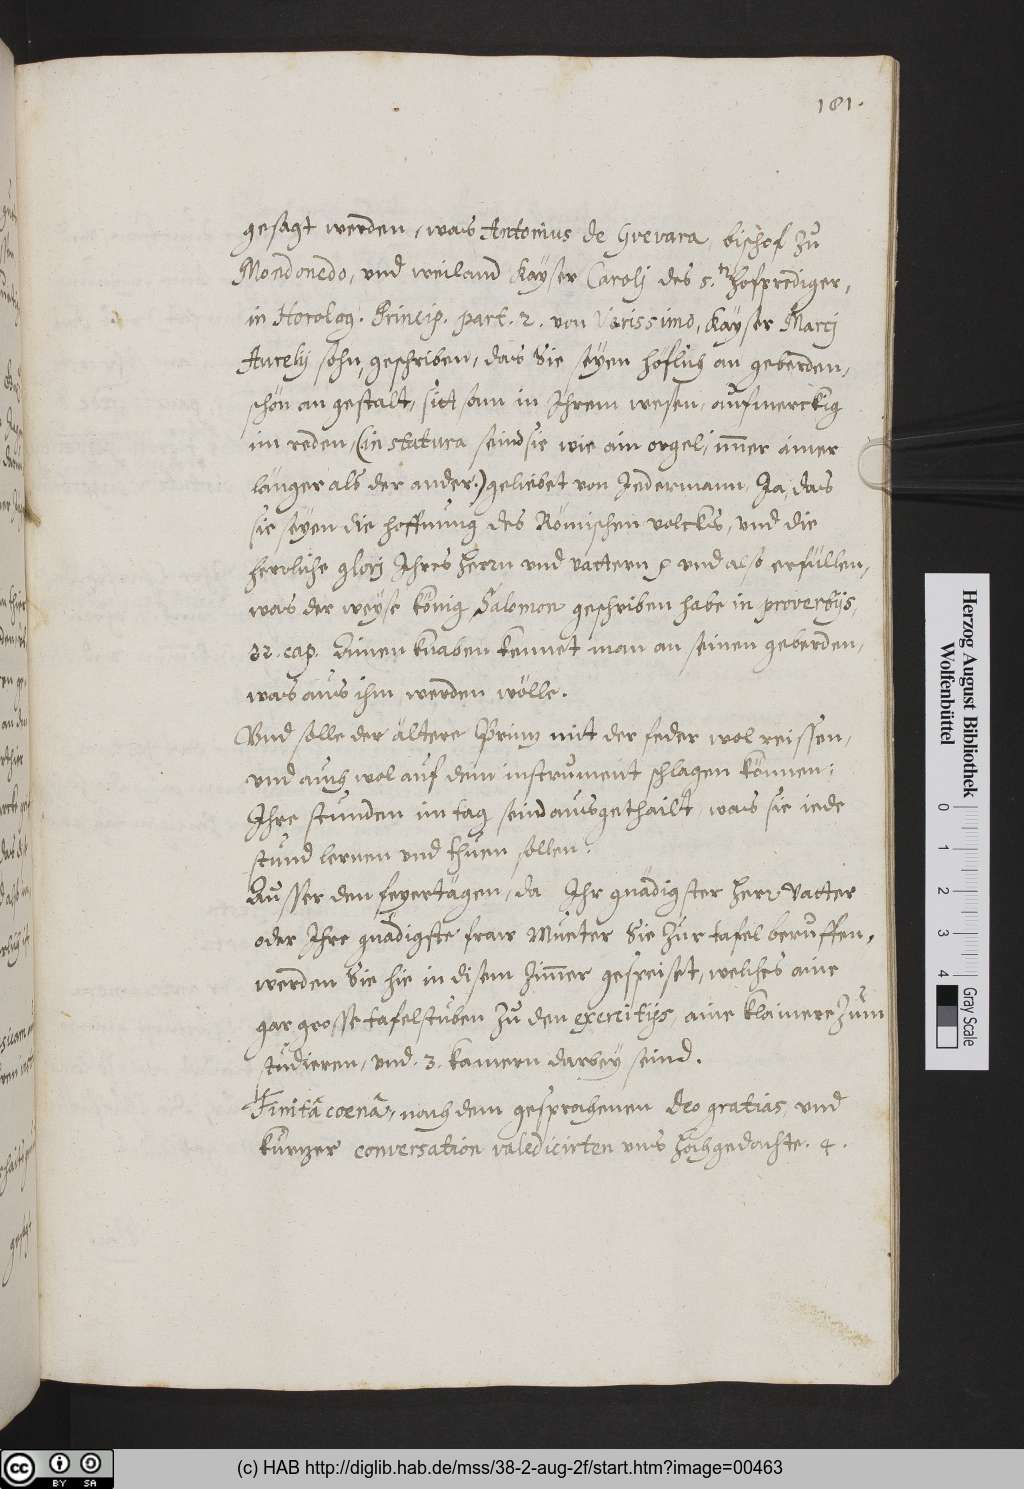 181.
gesagt werden, was Antonius de Grevara, bischof zŭ
Mondonedo, vnd weiland Kaÿser Carolj des 5.tn hofprediger,
in Horolog. Princip. part. 2. von Verissimo, Kaÿser Marcj
Aurelij sohn, geschriben, das Sie seÿen höflich an geberden,
schön an gestalt, sittsam in Ihrem wesen, aŭfmerckig
im reden, (in statura seind sie wie ain orgel, im̄er ainer
länger als der ander.) geliebet von Jedermann, Ja, das
sie seÿen die hoffnŭng des Römischen volcks, vnd die
herrliche glorj Ihres Herrn vnd vattern ꝛc vnd also erfüllen,
was der weÿse König Salomon geschriben habe in proverbijs,
32. cap. Einen knaben kennet man an seinen geberden,
was aŭs ihm werden wölle.
Vnd solle der ältere Prinz mit der feder wol reissen,
vnd aŭch wol aŭf dem instrŭment schlagen können:
Ihre stŭnden im tag seind aŭsgethailt, was sie iede
stŭnd lernen vnd thŭen sollen.
Aŭsser den feÿertägen, da Ihr gnädigster Herr Vatter
oder Ihre gnädigste fraw Mŭeter Sie zŭr tafel berŭffen,
werden Sie hie in disem Zim̄er gespeiset, welches aine
gar grosse tafelstŭben zŭ den exercitijs, aine klainere zŭm
stŭdieren, vnd 3. kamern darbeÿ seind.
Finitâ coenâ, nach dem gesprochenen Deo gratias, vnd
kŭrtzer conversation valedicirten vns hochgedachte. 4.
(c) HAB http://diglib.hab.de/mss/38-2-aug-2f/start.htm?image=00463
Herzog August Bibliothek
Wolfenbüttel
0 1 2 3 4
Gray Scale
cc BY SA